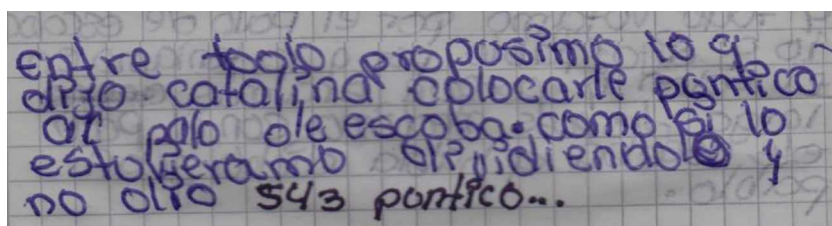 Entre todo proposimo lo q
dijo catalina colocarle pontico
al palo de escoba. como si lo
estuvieramo dividiendo y
no dio 543 pontico...